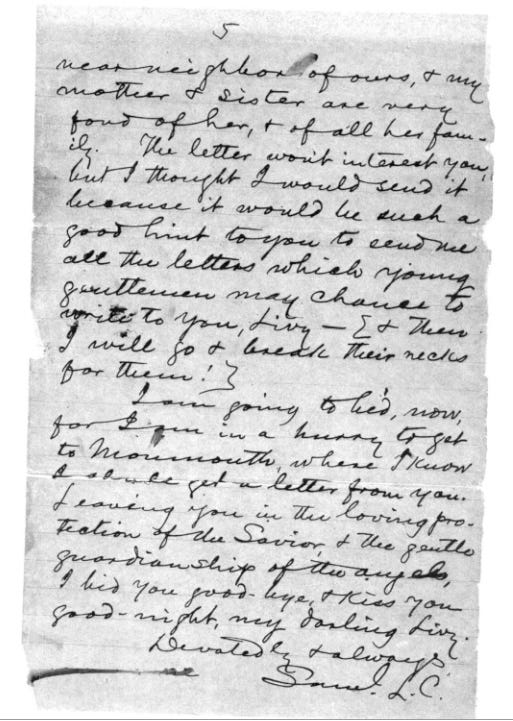 5
near neighbor of ours, & my
mother & sister are very
fond of her, & of all her fam-
ily. The letter won't interest you,
but I thought I would send it
because it would be such a
good hint to you to send me
all the letters which young
gentlemen may chance to
write to you, Livy — { & then
I will go & break their necks
for them! }
I am going to bed, now,
for I am in a hurry to get
to Monmouth, where I know
I shall get a letter from you.
Leaving you in the loving pro-
tection of the Savior, & the gentle
guardianship of the angels,
I bid you good-bye, & kiss you
good-night, my darling Livy.
Devotedly & always
Saml. L. C.